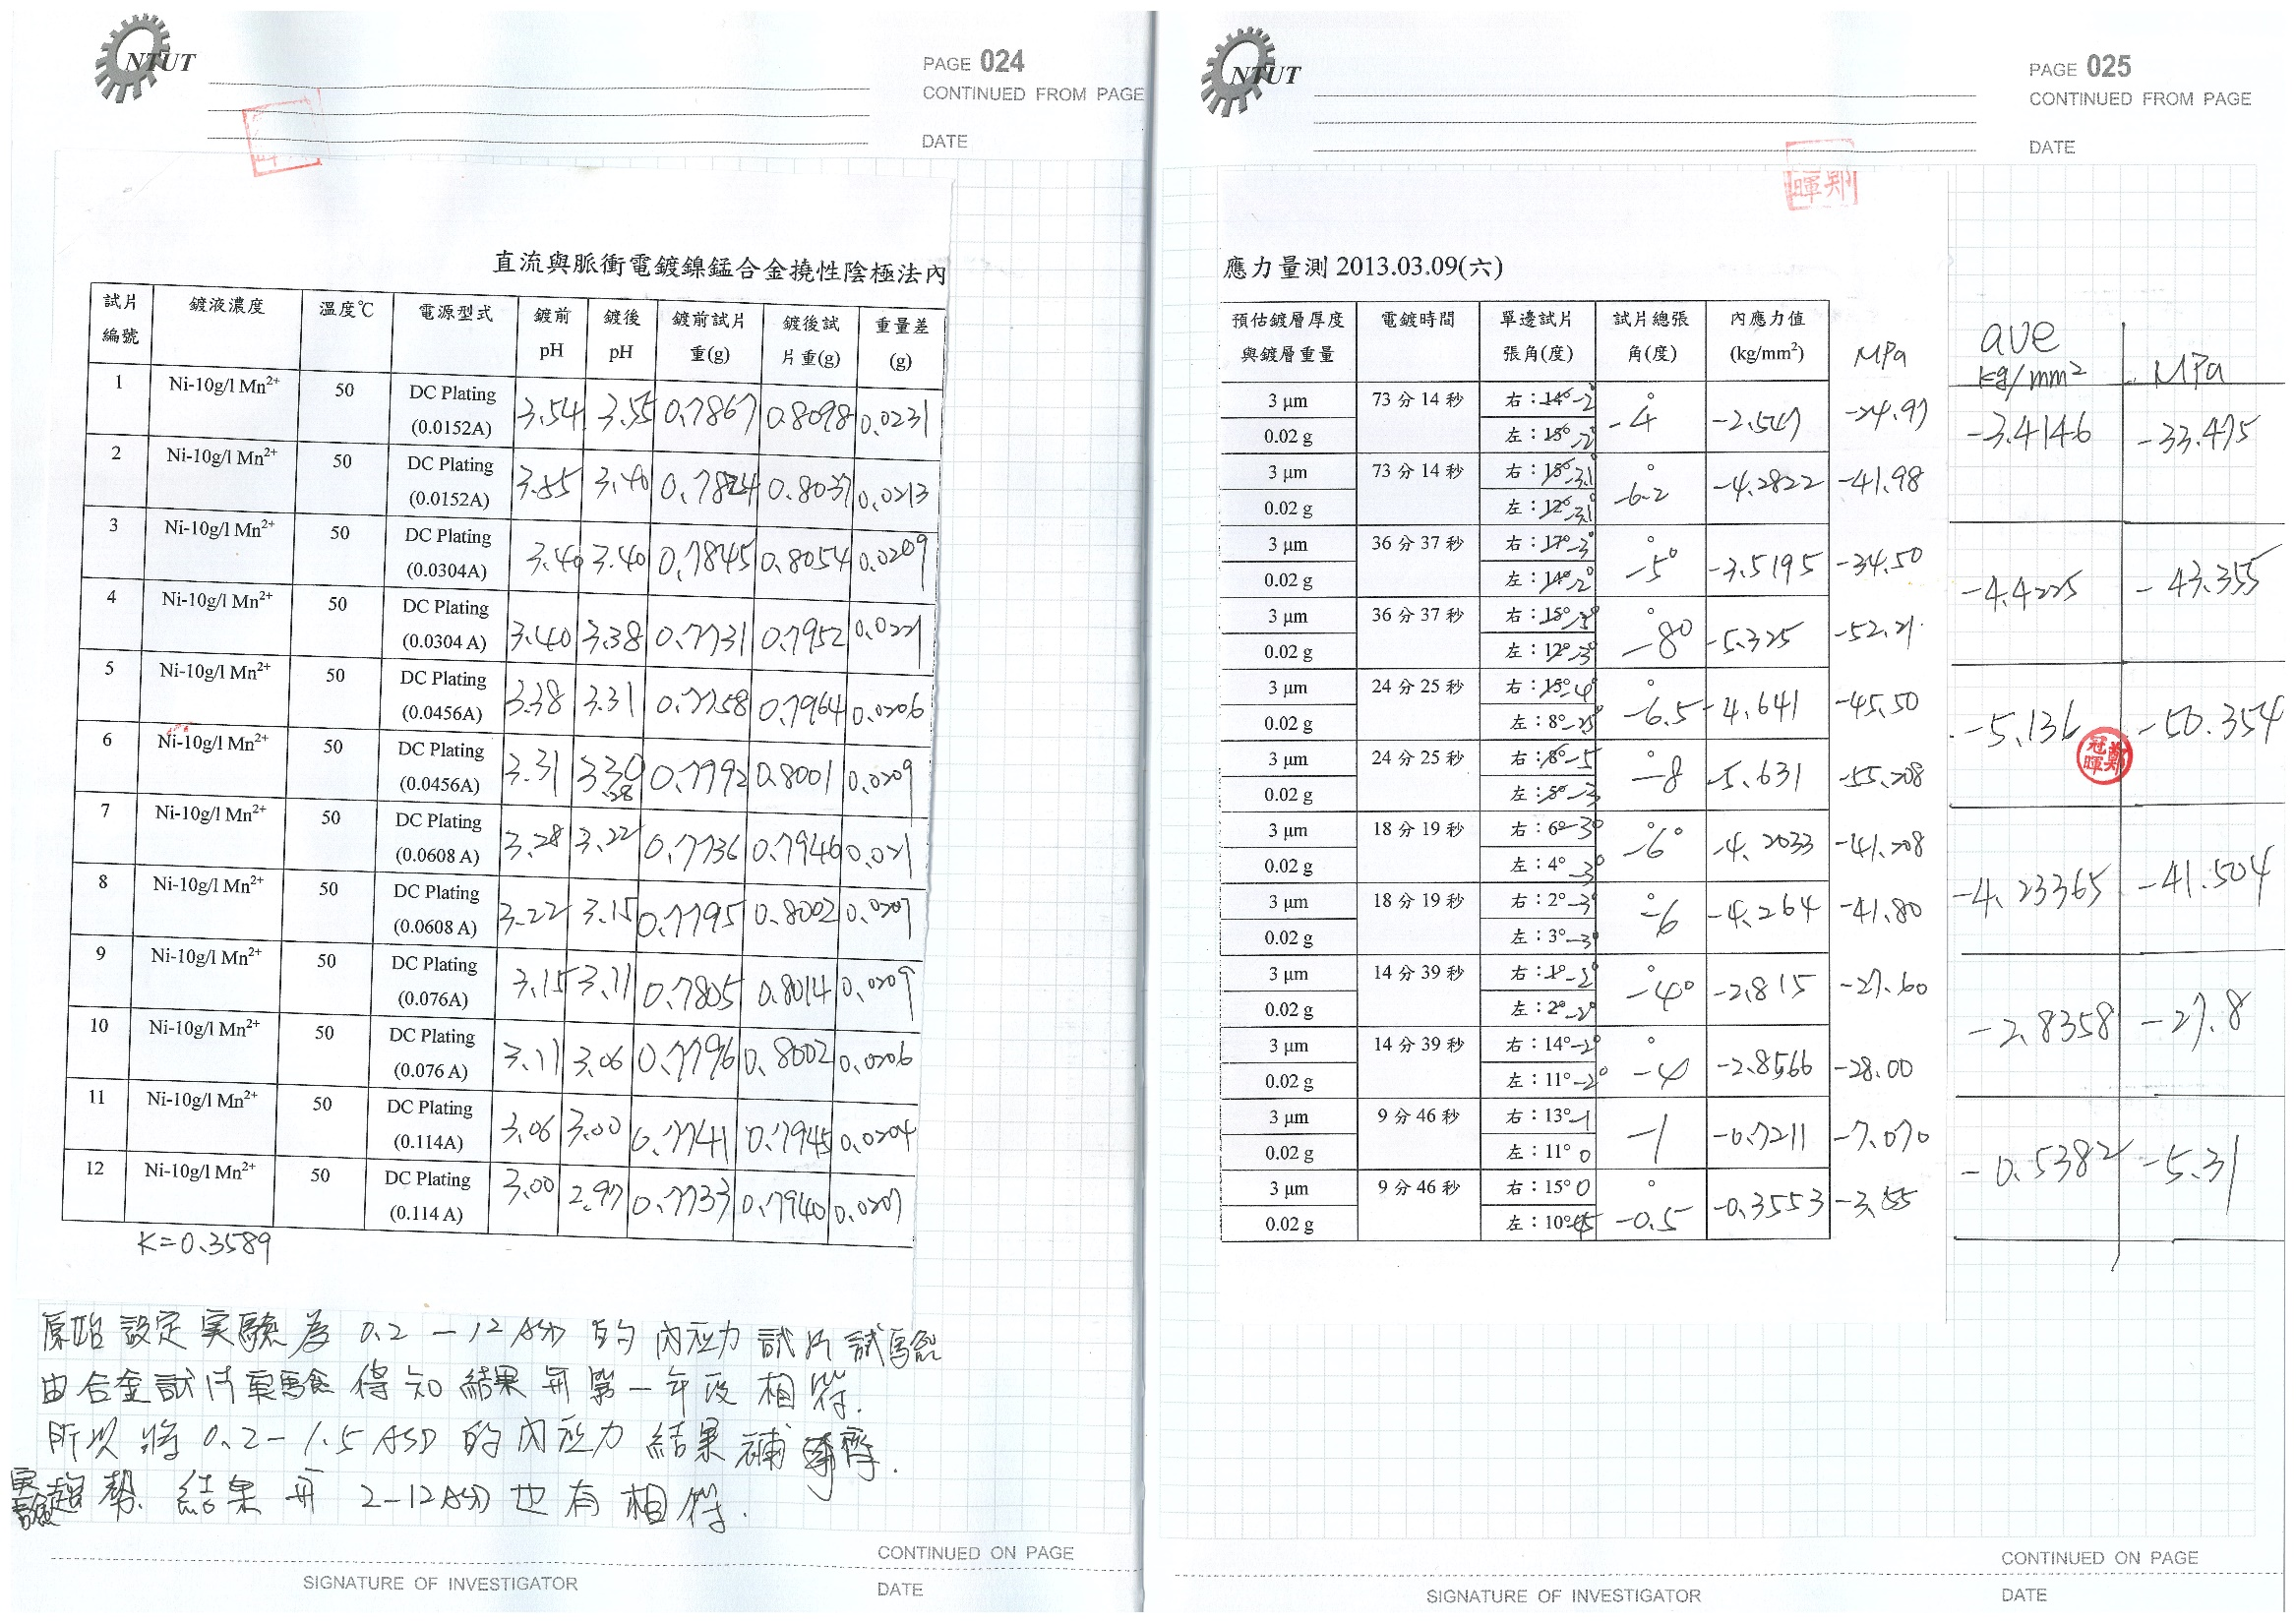 NTUT
PAGE 024
CONTINUED FROM PAGE
DATE
直流與脈衝電鍍鎳錳合金撓性陰極法內
試片編號 鍍液濃度 溫度℃ 電源型式 鍍前pH 鍍後pH 鍍前試片重(g) 鍍後試片重(g) 重量差(g)
1 Ni-10g/l Mn2+ 50 DC Plating (0.0152A) 3.54 3.55 0.7867 0.8098 0.0231
2 Ni-10g/l Mn2+ 50 DC Plating (0.0152A) 3.55 3.40 0.7824 0.8037 0.0213
3 Ni-10g/l Mn2+ 50 DC Plating (0.0304A) 3.40 3.40 0.7845 0.8054 0.0209
4 Ni-10g/l Mn2+ 50 DC Plating (0.0304 A) 3.40 3.38 0.7731 0.7952 0.0221
5 Ni-10g/l Mn2+ 50 DC Plating (0.0456A) 3.38 3.31 0.7758 0.7964 0.0206
6 Ni-10g/l Mn2+ 50 DC Plating (0.0456A) 3.31 3.28 0.7792 0.8001 0.0209
7 Ni-10g/l Mn2+ 50 DC Plating (0.0608 A) 3.28 3.22 0.7736 0.7946 0.021
8 Ni-10g/l Mn2+ 50 DC Plating (0.0608 A) 3.22 3.15 0.7795 0.8002 0.0207
9 Ni-10g/l Mn2+ 50 DC Plating (0.076A) 3.15 3.11 0.7805 0.8014 0.0209
10 Ni-10g/l Mn2+ 50 DC Plating (0.076 A) 3.11 3.06 0.7796 0.8002 0.0206
11 Ni-10g/l Mn2+ 50 DC Plating (0.114A) 3.06 3.00 0.7741 0.7945 0.0204
12 Ni-10g/l Mn2+ 50 DC Plating (0.114 A) 3.00 2.97 0.7733 0.7940 0.0207
K=0.3589
原始設定實驗為 0.2-12 ASD 的內應力試片試驗
由合金試片實驗得知結果與第一年度相符.
所以將 0.2-1.5 ASD 的內應力結果補齊.
實驗趨勢結果與 2-12 ASD 也有相符.
CONTINUED ON PAGE
SIGNATURE OF INVESTIGATOR
DATE
NTUT
PAGE 025
CONTINUED FROM PAGE
DATE
應力量測 2013.03.09(六)
預估鍍層厚度與鍍層重量 電鍍時間 單邊試片張角(度) 試片總張角(度) 內應力值(kg/mm2) MPa ave kg/mm2 MPa
3 μm 0.02 g 73 分 14 秒 右:14° -2° 左:15° -2° -4° -2.547 -24.97 -3.4146 -33.475
3 μm 0.02 g 73 分 14 秒 右:15° -3.1° 左:12° -3.1° -6.2° -4.2822 -41.98
3 μm 0.02 g 36 分 37 秒 右:17° -3° 左:14° -2° -5° -3.5195 -34.50 -4.4225 -43.355
3 μm 0.02 g 36 分 37 秒 右:15° 左:12° -3° -8° -5.325 -52.21
3 μm 0.02 g 24 分 25 秒 右:15° -4° 左:8° -2.5° -6.5° -4.641 -45.50 -5.136 -50.354
3 μm 0.02 g 24 分 25 秒 右:8° -5 左:5° -3 -8° -5.631 -55.208
3 μm 0.02 g 18 分 19 秒 右:6° -3° 左:4° -3° -6° -4.2033 -41.208 -4.23365 -41.504
3 μm 0.02 g 18 分 19 秒 右:2° -3° 左:3° -3° -6° -4.264 -41.80
3 μm 0.02 g 14 分 39 秒 右:1° -2° 左:2° -2° -4° -2.815 -27.60 -2.8358 -27.8
3 μm 0.02 g 14 分 39 秒 右:14° -2° 左:11° -2° -4° -2.8566 -28.00
3 μm 0.02 g 9 分 46 秒 右:13° -1 左:11° 0 -1 -0.7211 -7.070 -0.5382 -5.31
3 μm 0.02 g 9 分 46 秒 右:15° 0 左:10° -0.5° -0.3553 -3.55
冠鄭暉
CONTINUED ON PAGE
SIGNATURE OF INVESTIGATOR
DATE